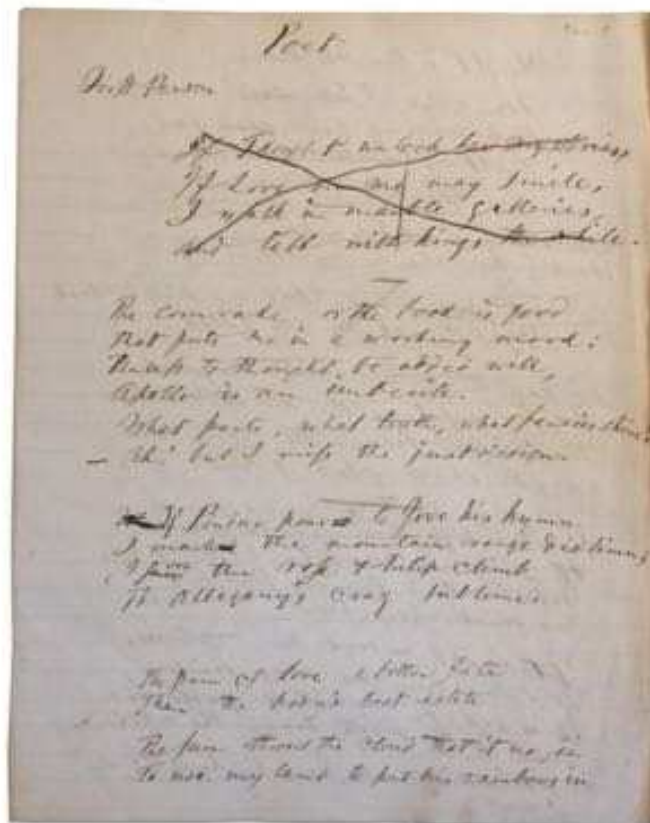 Poet
If Thought unlock her mysteries,
If Love on me may smile,
I walk in marble galleries,
And talk with kings the while.
The comrade or the book is good
That puts me in a working mood:
Unless to thought be added will,
Apollo is an imbecile.
What parts, what truth, what fancies shine!
— Ah! but I miss the just design.
If Pindar poured to Jove his hymn
I mark the mountain range
I the rose & tulip climb
The Alleghany's crag sublime.
The pain of love a better fate
Than the body's best estate
The sun athwart the cloud
To use my land to put his rainbows in.